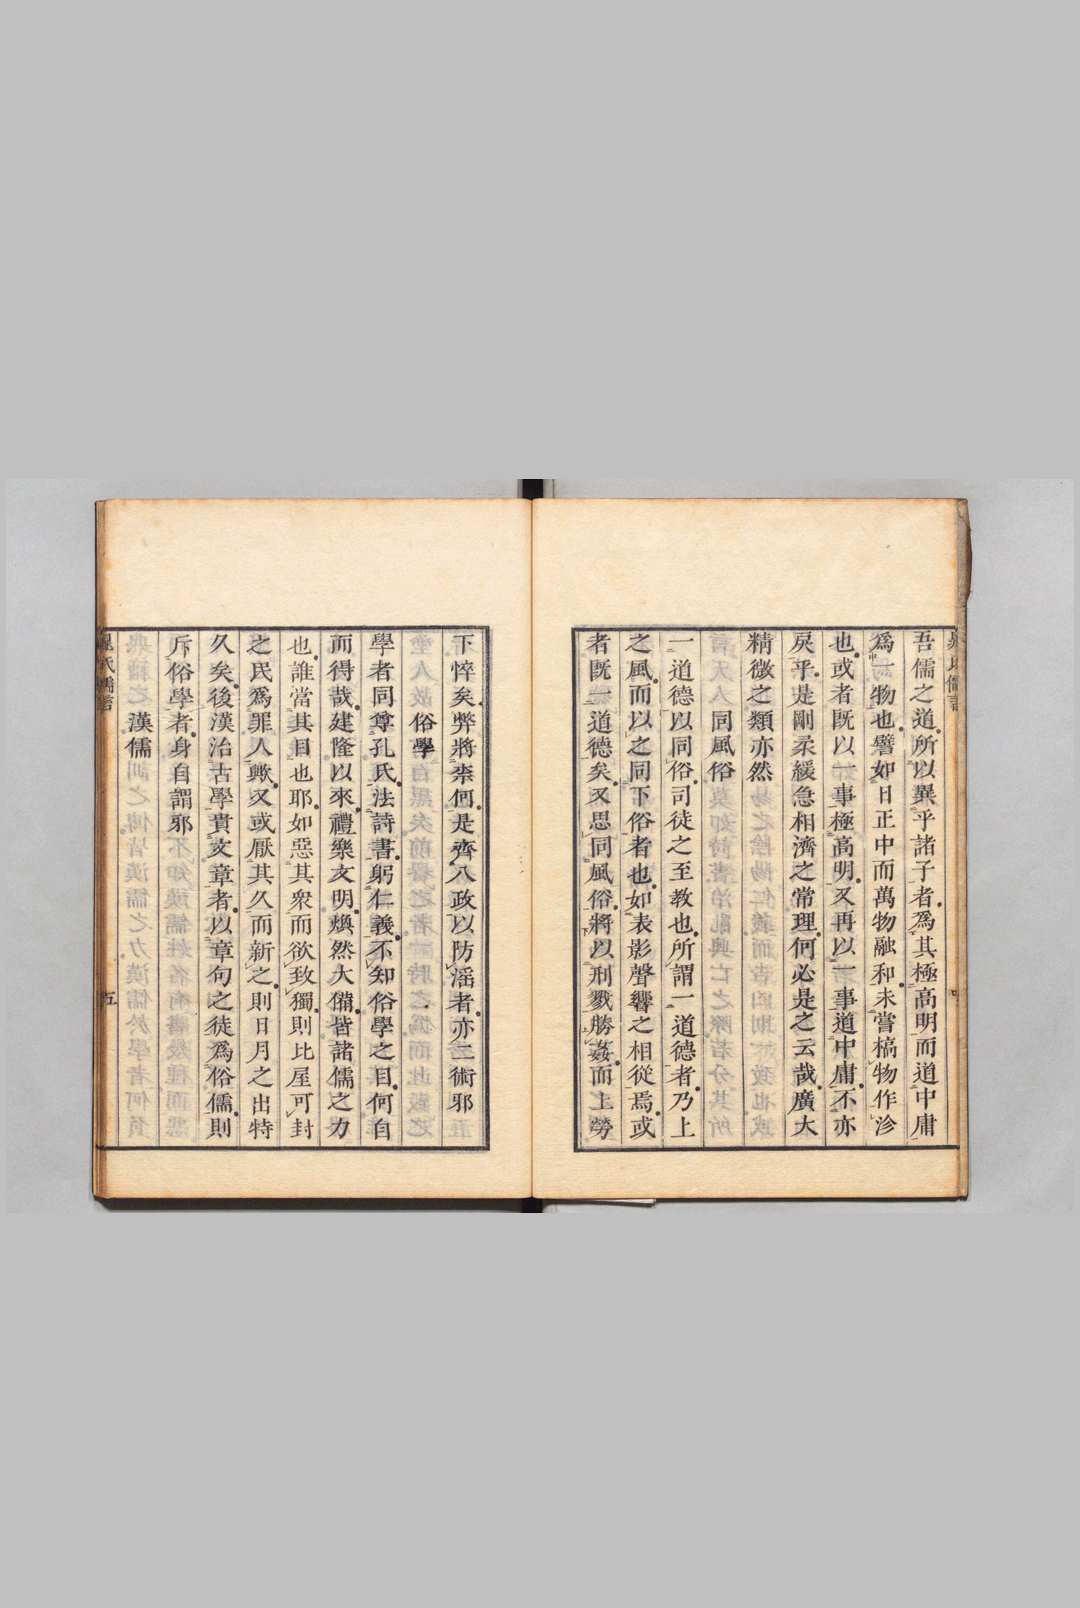 晁氏儒言
吾儒之道所以異乎諸子者爲其極高明而道中庸
爲一物也譬如日正中而萬物融和未嘗槁物作沴
也或者既以一事極高明又再以一事道中庸不亦
戾乎是剛柔緩急相濟之常理何必是之云哉廣大
精微之類亦然
同風俗
一道德以同俗司徒之至教也所謂一道德者乃上
之風而以之同下俗者也如表影聲響之相從焉或
者既一道德矣又思同風俗將以刑戮勝姦而上勞
下悴矣弊將柰何是齊八政以防淫者亦二術邪
俗學
學者同尊孔氏法詩書躬仁義不知俗學之目何自
而得哉建隆以來禮樂文明煥然大備皆諸儒之力
也誰當其目也耶如惡其衆而欲致獨則比屋可封
之民爲罪人歟又或厭其久而新之則日月之出特
久矣後漢治古學貴文章者以章句之徒爲俗儒則
斥俗學者身自謂邪
漢儒
晁氏儒言
五